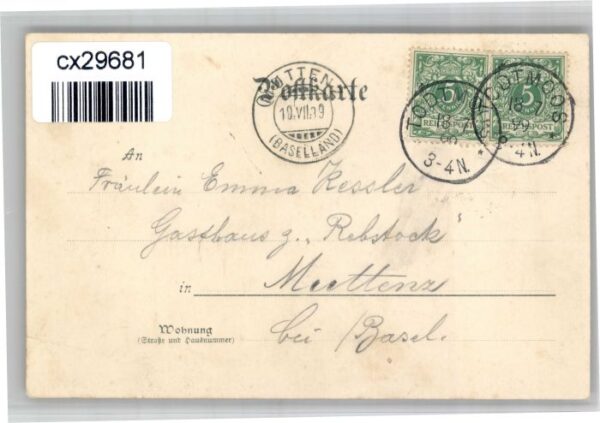 cx29681
Postkarte
MUTTENZ
19.VII.99
(BASELLAND)
5
REICHSPOST
5
REICHSPOST
TODTM
18
3-4N.
TODTMOOS
18 7
99
3-4N.
An
Fräulein Emma Kessler
Gasthaus z. „Rebstock“
in Muttenz
bei Basel.
Wohnung
(Straße und Hausnummer)